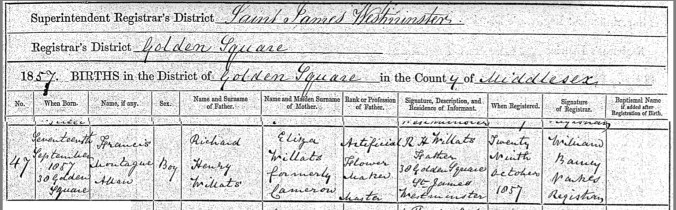 Superintendent Registrar's District Saint James Westminster.
Registrar's District Golden Square
1857. BIRTHS in the District of Golden Square in the County of Middlesex
No. When Born. Name, if any. Sex. Name and Surname of Father. Name and Maiden Surname of Mother. Rank or Profession of Father. Signature, Description, and Residence of Informant. When Registered. Signature of Registrar. Baptismal Name if added after Registration of Birth.
47
Seventeenth September 1857 30 Golden Square
Francis Montague Allan
Boy
Richard Henry Willats
Eliza Willats formerly Cameron
Artificial Flower Maker Master
R H Willats Father 30 Golden Square St James Westminster
Twenty Ninth October 1857
William Registrar